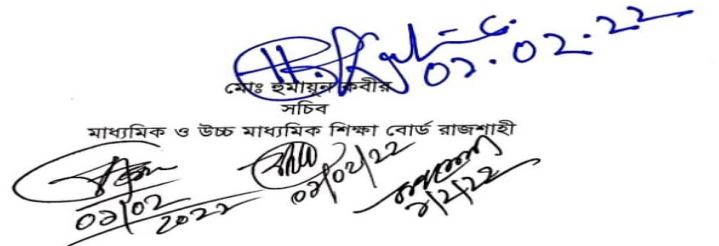 ০২.০২.২২
মোঃ হুমায়ূন কবীর
সচিব
মাধ্যমিক ও উচ্চ মাধ্যমিক শিক্ষা বোর্ড রাজশাহী
০২/০২/২২
২/২/২২
০২/০২
২০২২